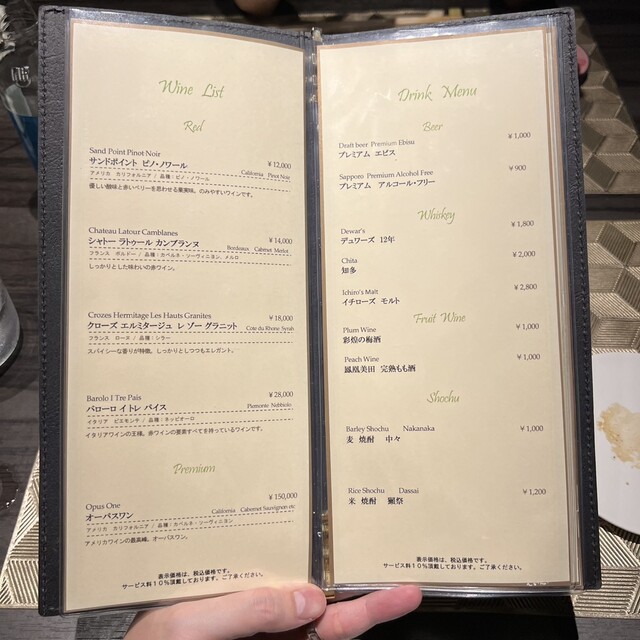 Wine List
Red
Sand Point Pinot Noir
サンドポイント ピノ・ノワール ¥12,000
California Pinot Noir
アメリカ カリフォルニア / 品種:ピノ・ノワール
優しい酸味と赤いベリーを思わせる果実味。のみやすいワインです。
Chateau Latour Camblanes
シャトー ラトゥール カンブランヌ ¥14,000
Bordeaux Cabernet Merlot
フランス ボルドー / 品種:カベルネ・ソーヴィニヨン、メルロ
しっかりとした味わいの赤ワイン。
Crozes Hermitage Les Hauts Granites ¥18,000
クローズ エルミタージュ レ ゾー グラニット Cote du Rhone Syrah
フランス ローヌ / 品種:シラー
スパイシーな香りが特徴。しっかりとしつつもエレガント。
Barolo I Tre Pais ¥28,000
バローロ イトレ パイス Piemonte Nebbiolo
イタリア ピエモンテ / 品種:ネッビオーロ
イタリアワインの王様。赤ワインの要素すべてを持っているワインです。
Premium
Opus One ¥150,000
オーパスワン California Cabernet Sauvignon etc
アメリカ カリフォルニア / 品種:カベルネ・ソーヴィニヨン
アメリカワインの最高峰。オーパスワン。
表示価格は、税込価格です。
サービス料10%頂戴しております。ご了承ください。
Drink Menu
Beer
Draft beer Premium Ebisu ¥1,000
プレミアム エビス
Sapporo Premium Alcohol Free ¥900
プレミアム アルコール・フリー
Whiskey
Dewar's ¥1,800
デュワーズ 12年
Chita ¥2,000
知多
Ichiro's Malt ¥2,800
イチローズ モルト
Fruit Wine
Plum Wine ¥1,000
彩煌の梅酒
Peach Wine ¥1,000
鳳凰美田 完熟もも酒
Shochu
Barley Shochu Nakanaka ¥1,000
麦 焼酎 中々
Rice Shochu Dassai ¥1,200
米 焼酎 獺祭
表示価格は、税込価格です。
サービス料10%頂戴しております。ご了承ください。